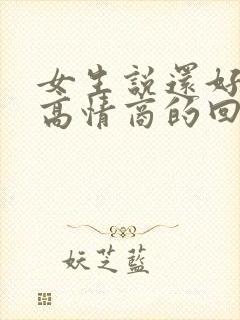 女生說還好
高情商的回
妖芝藍